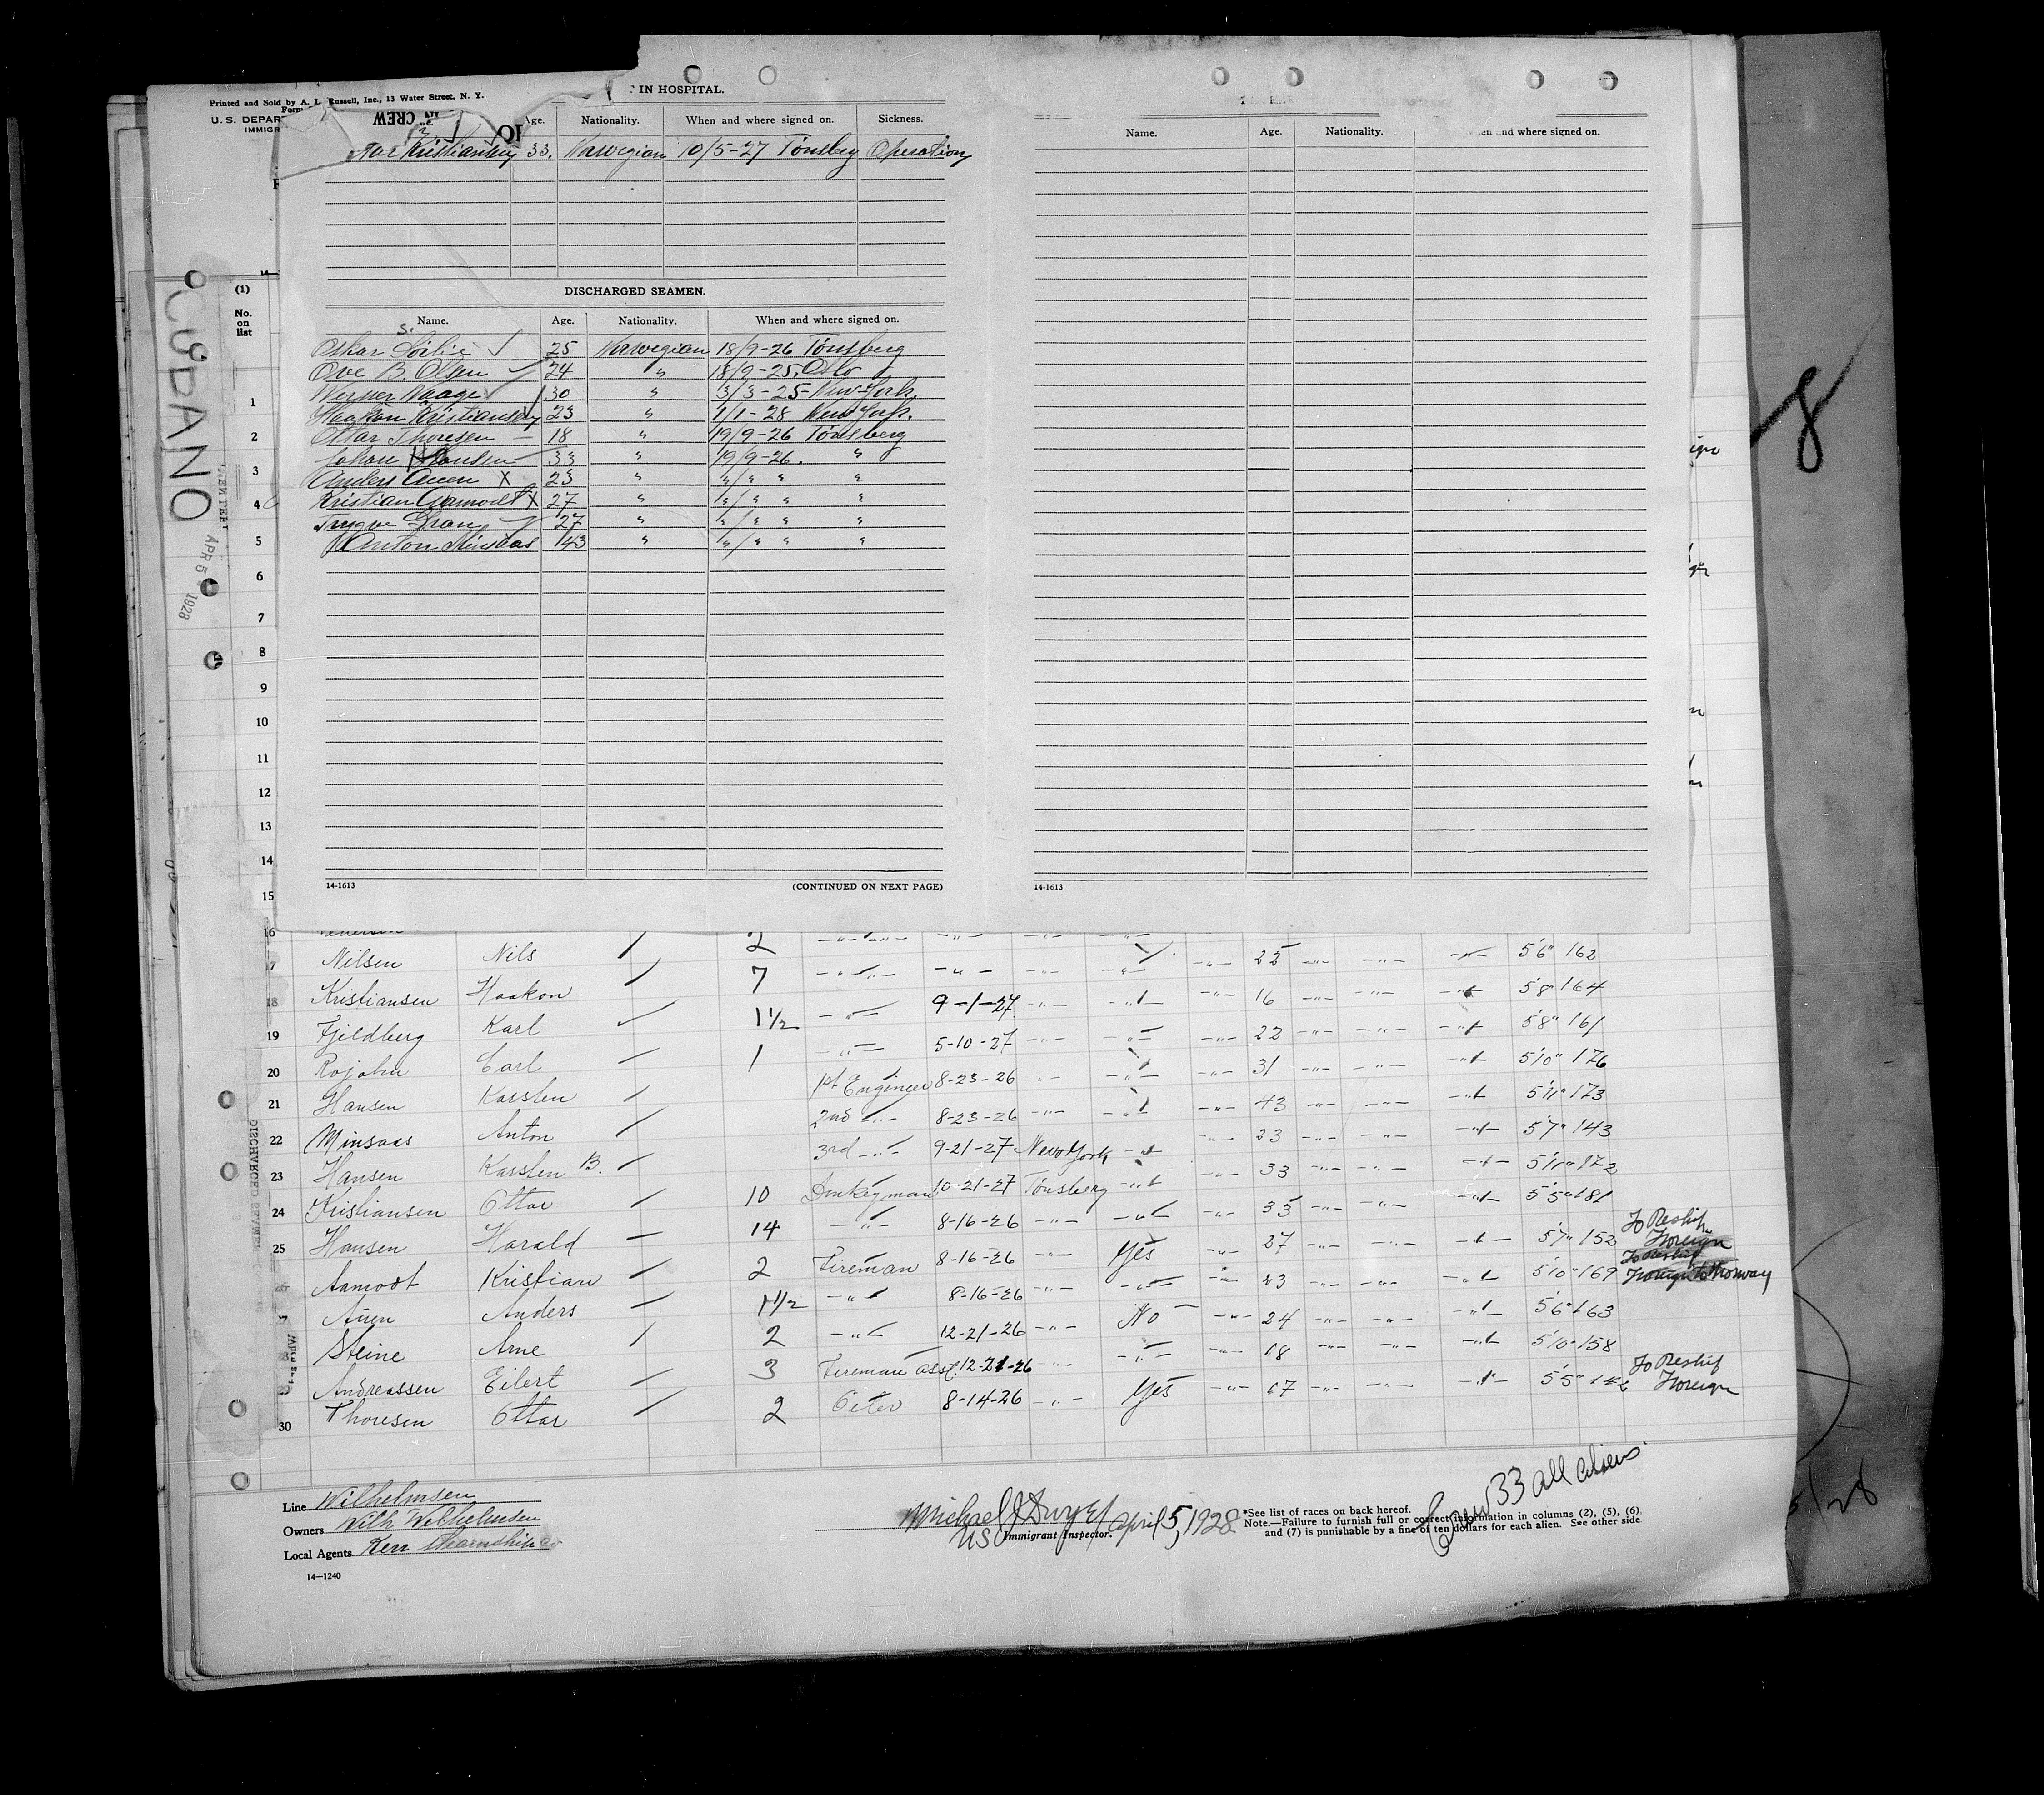 Printed and Sold by A. L. Russell, Inc., 13 Water Street, N. Y.
Form
U. S. DEPAR
IMMIG
CREW
IN HOSPITAL.
Age. Nationality. When and where signed on. Sickness.
Kristiansen 33. Norwegian 10/5-27 Tönsberg Operation
DISCHARGED SEAMEN.
Name. Age. Nationality. When and where signed on.
S.
Oskar 25 Norwegian 18/9-26 Tönsberg
Ove B. Olsen 24 " 18/9-25. Oslo
Werner Waage 30 " 3/3-25- New-York.
Haakon Kristiansen 23 " 1/1-28 New York.
Ottar Thoresen 18 " 19/9-26 Tönsberg
Johan Hansen 33 " 19/9-26. "
Anders Auen X 23 " "/ " " "
Kristian Aamodt X 27 " "/ " " "
Trygve Gran 27 " "/ " " "
Anton Minsaas 43 " "/ " " "
14-1613 (CONTINUED ON NEXT PAGE)
Name. Age. Nationality. When and where signed on.
14-1613
CUBANO
APR 5 1928
8
(1)
No.
on
list
1
2
3
4
5
6
7
8
9
10
11
12
13
14
15
16 2
17 Nilsen Nils 7 22 5'6" 162
18 Kristiansen Haakon 9-1-27 16 5'8" 164
19 Fjeldberg Karl 1 1/2 5-10-27 22 5'8" 161
20 Rojahn Carl 1 1st Engineer 8-23-26 31 5'10" 176
21 Hansen Karsten 2nd 8-23-26 43 5'11" 173
22 Minsaas Anton 3rd 9-21-27 New York 23 5'7" 143
23 Hansen Karsten B. 33 5'11" 172
24 Kristiansen Ottar 10 Donkeyman 10-21-27 Tönsberg 33 5'5" 181
25 Hansen Harald 14 8-16-26 Yes 27 5'7" 152 To Reship Foreign
26 Aamodt Kristian 2 Fireman 8-16-26 23 5'10" 169 To Reship
7 Auen Anders 1 1/2 8-16-26 No 24 5'6" 163
28 Steine Arne 2 12-21-26 18 5'10" 158
29 Andreassen Eilert 3 Fireman asst. 12-21-26 Yes 17 5'5" To Reship Foreign
30 Thoresen Ottar 2 8-14-26
DISCHARGED SEAMEN
Crew 33 all aliens
Line Wilhelmsen
Owners Wilh Wilhelmsen
Local Agents Kerr Steamship Co
14—1240
Michael J Dwyer April 5, 1928
US Immigrant Inspector.
*See list of races on back hereof.
Note.—Failure to furnish full or correct information in columns (2), (5), (6), and (7) is punishable by a fine of ten dollars for each alien. See other side.